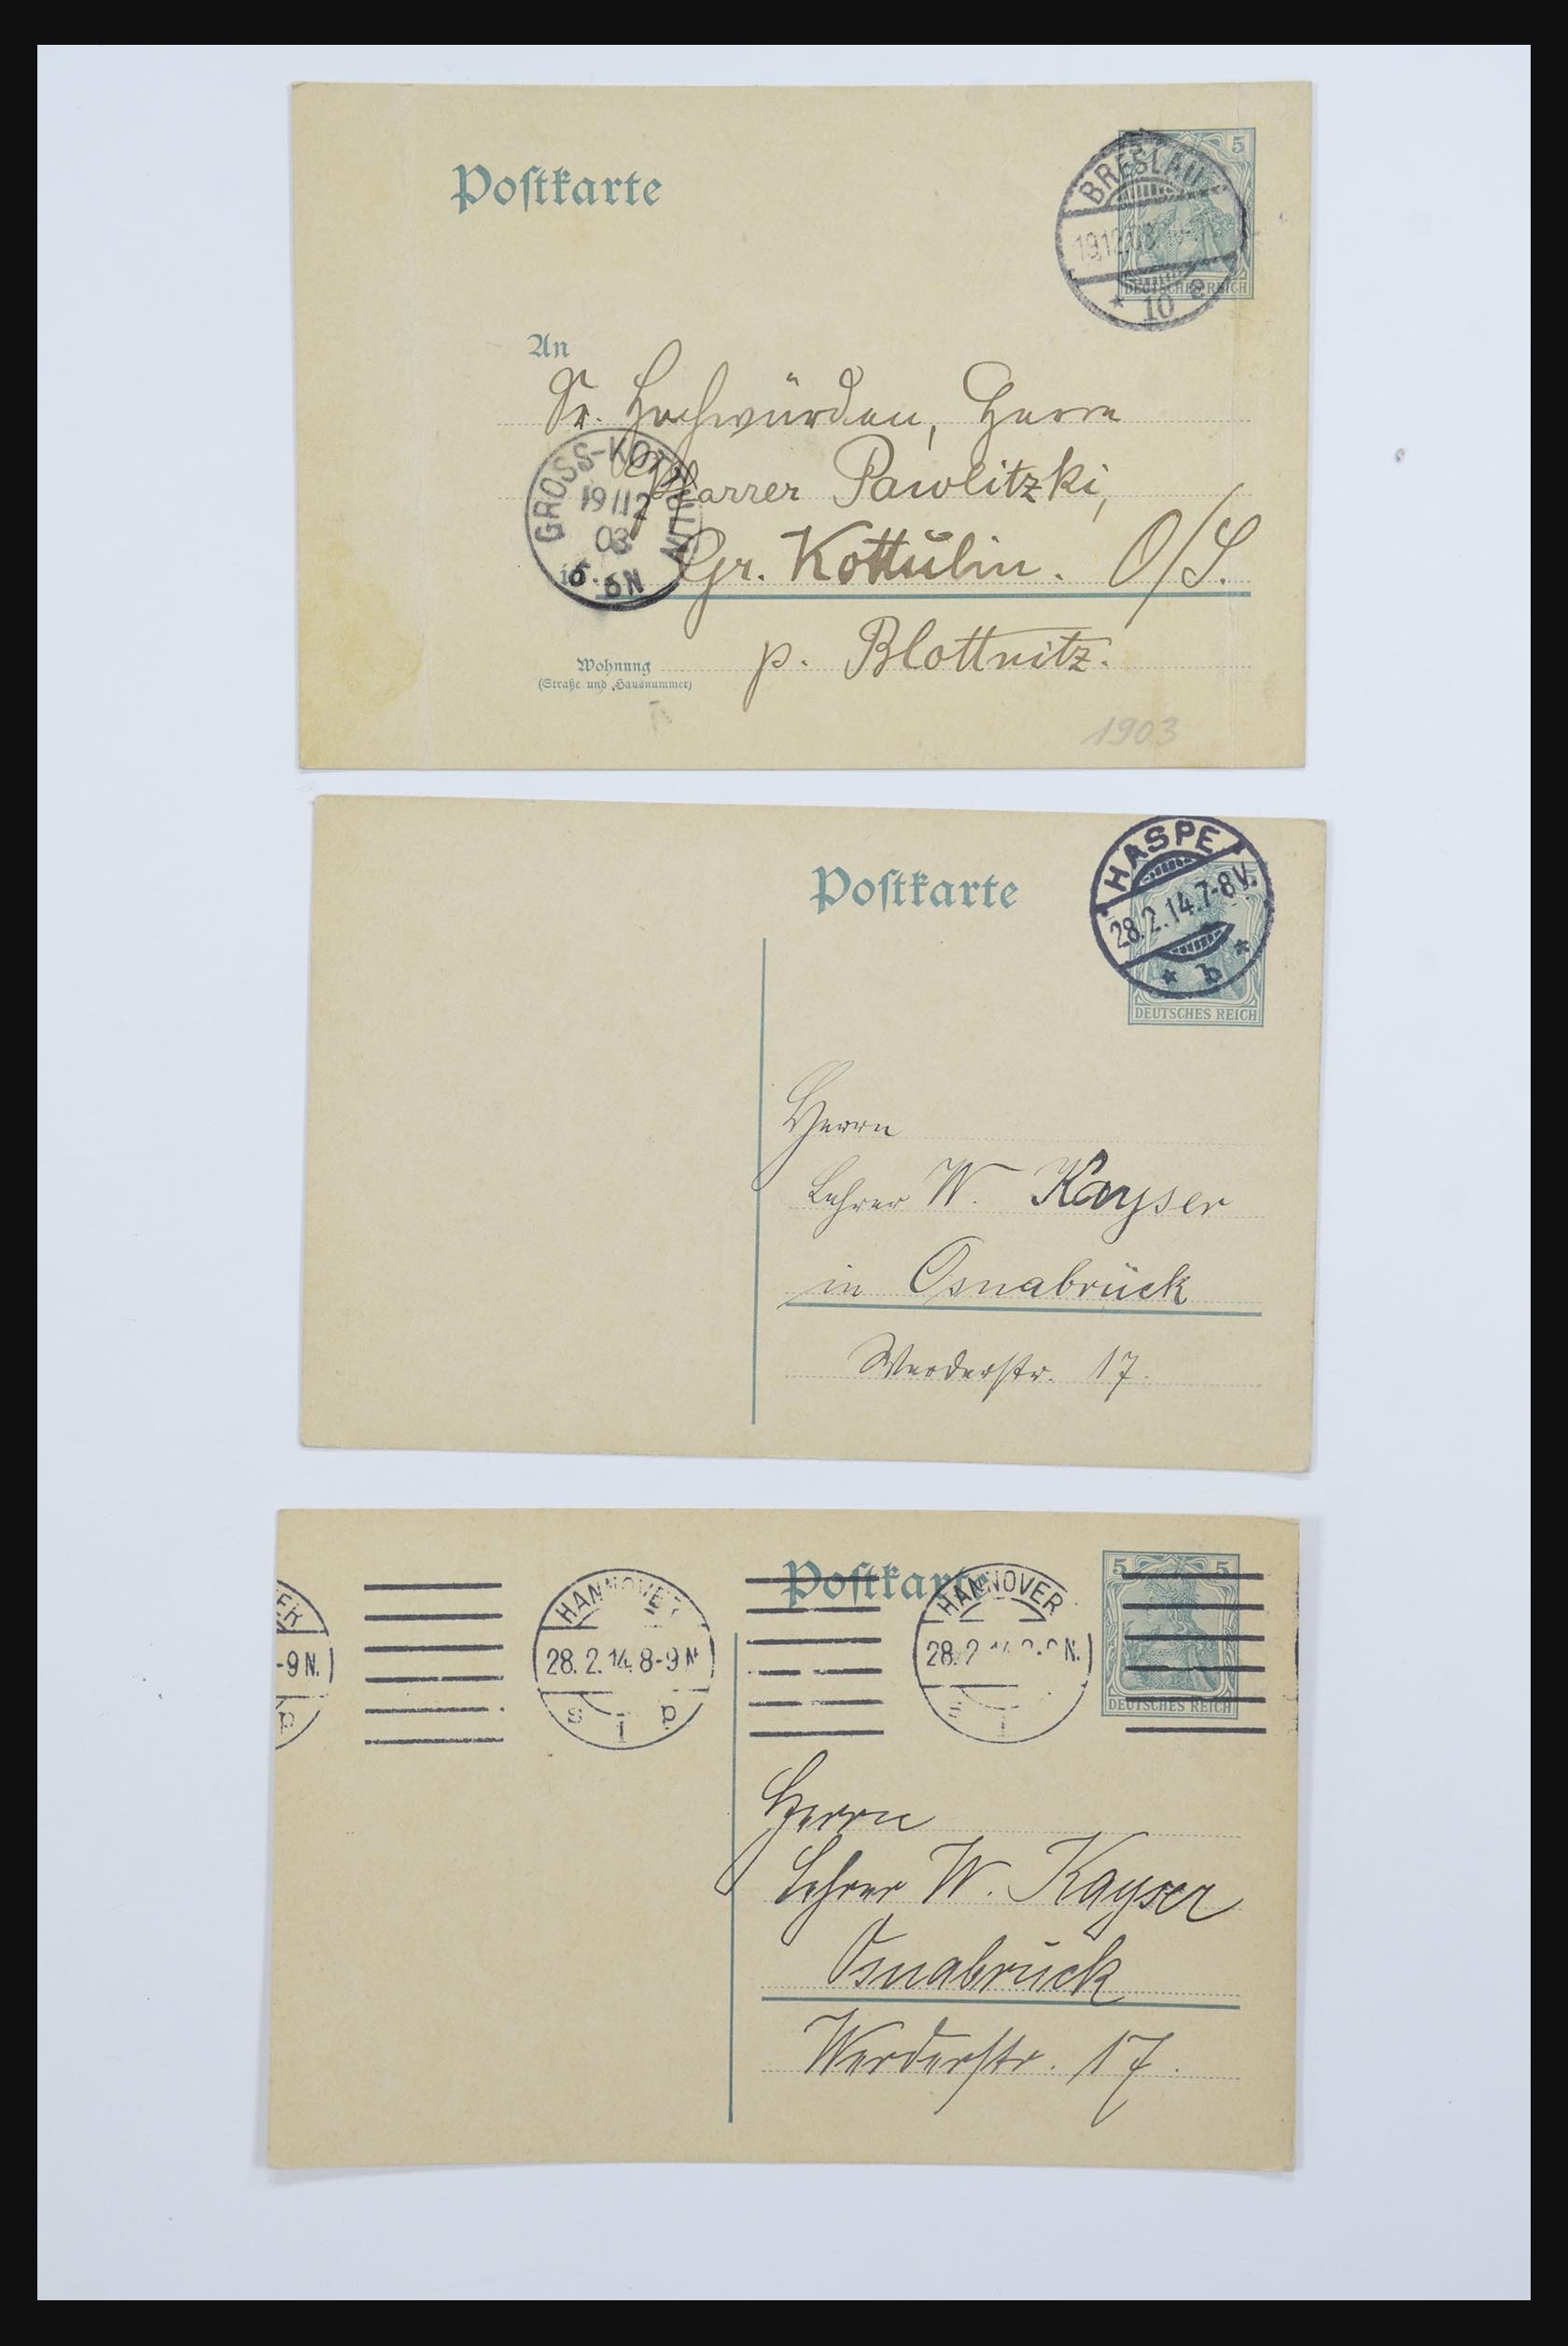 Postkarte
5
DEUTSCHES REICH
BRESLAU
19.12.03.
* 10 e
An
Sr. Hochwürden, Herrn
Pfarrer Pawlitzki,
Gr. Kottulin. O/S.
GROSS-KOTTULIN
19/12
03
5-6N
Wohnung
(Straße und Hausnummer)
p. Blottnitz.
1903
Postkarte
HASPE
28.2.14.7-8V.
* b *
DEUTSCHES REICH
Herrn
Lehrer W. Kayser
in Osnabrück
Werderstr. 17.
Postkarte
5 5
DEUTSCHES REICH
ER
-9N.
p
HANNOVER
28.2.14.8-9N
s 1 p
HANNOVER
28.2 N.
s 1
Herrn
Lehrer W. Kayser
Osnabrück
Werderstr. 17.